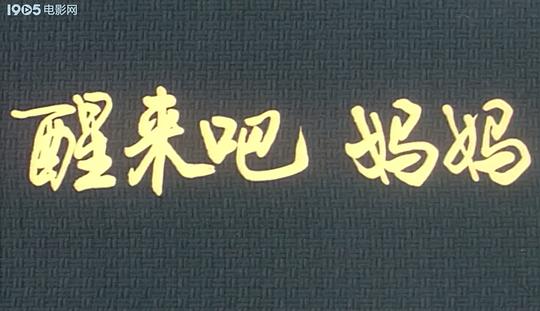 1905电影网
醒来吧 妈妈